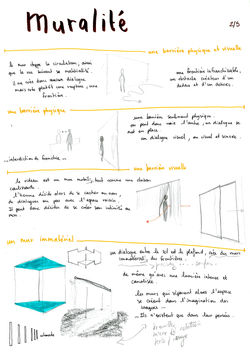 Muralité
2/3
une barrière physique et visuelle
le mur stoppe la circulation, ainsi
que la vue suivant sa matérialité.
Il ne crée donc aucun dialogue
mais cela plutôt une rupture, une
frontière.
une frontière infranchissable,
un obstacle créateur d'un
dedans et d'un dehors.
une barrière physique
une barrière seulement physique
on peut donc voir l'autre, un dialogue se
met en place
un dialogue visuel, ou visuel et sonore.
...interdiction de franchir...
une barrière visuelle
le rideau est un mur mobile, tout comme une cloison
coulissante.
L'homme décide alors de se cacher ou non,
de dialoguer ou pas avec l'espace voisin.
Il peut donc décider de se créer son intimité ou
non.
un mur immatériel
un dialogue entre le sol et le plafond, crée des murs
immatériels, des frontières.
de même qu'avec une lumière intense et
canalisée.
les murs qui séparent alors l'espace
se créent dans l'imagination des
usagers ...
... Ils n'existent que dans leur pensée.